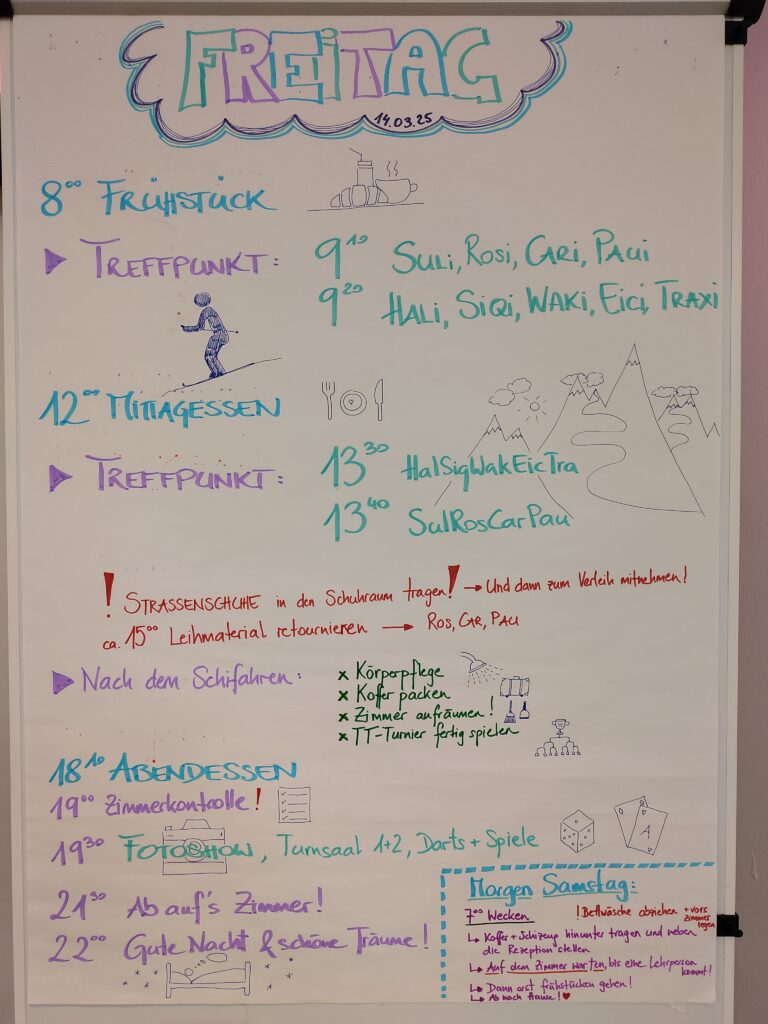 FREITAG
14.03.25
8⁰⁰ FRÜHSTÜCK
TREFFPUNKT: 9¹⁰ SULI, ROSI, CARI, PAUI
9²⁰ HALI, SIQI, WAKI, EICI, TRAXI
12⁰⁰ MITTAGESSEN
TREFFPUNKT: 13³⁰ HalSigWakEicTra
13⁴⁰ SulRosCarPau
! STRASSENSCHUHE in den Schuhraum tragen! → Und dann zum Verleih mitnehmen!
ca. 15⁰⁰ Leihmaterial retournieren → ROS, CAR, PAU
Nach dem Schifahren: x Körperpflege
x Koffer packen
x Zimmer aufräumen!
x TT-Turnier fertig spielen
18¹⁰ ABENDESSEN
19⁰⁰ Zimmerkontrolle!
19³⁰ FOTOSHOW, Turnsaal 1+2, Darts + Spiele
A
21³⁰ Ab auf's Zimmer!
22⁰⁰ Gute Nacht & schöne Träume!
Morgen Samstag:
7⁰⁰ Wecken ! Bettwäsche abziehen + vors Zimmer legen
↳ Koffer + Schizeug hinunter tragen und neben
die Rezeption stellen
↳ Auf dem Zimmer warten, bis eine Lehrperson
kommt!
↳ Dann erst frühstücken gehen!
↳ Ab nach Hause! ♥